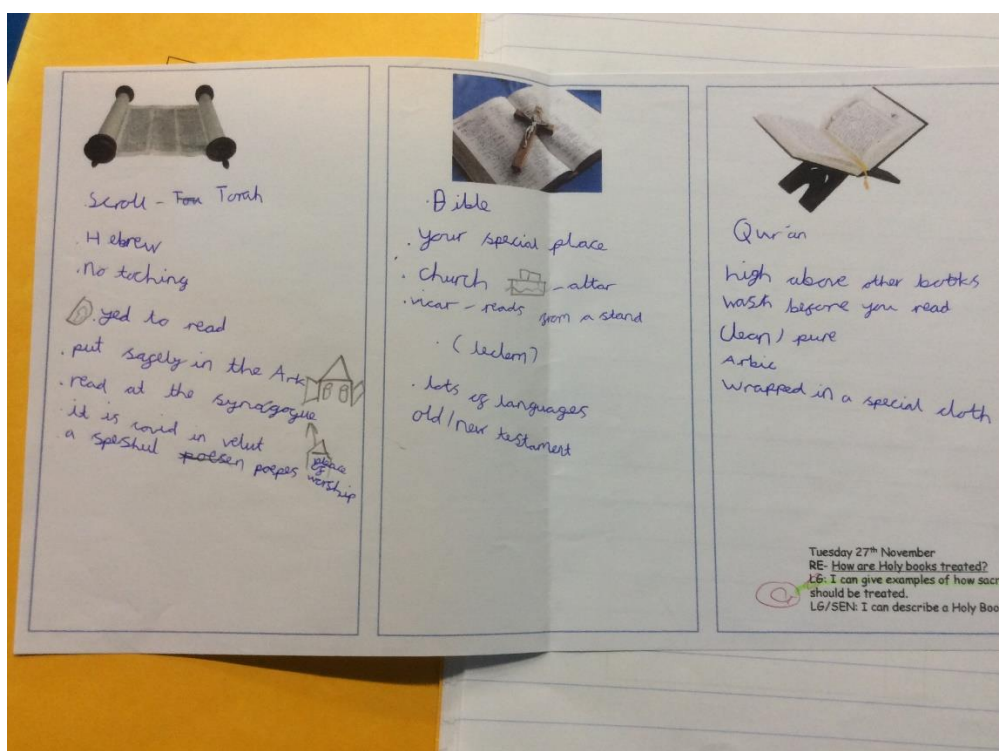 . Scroll - Tor Torah
. Hebrew
. No toching
. yed to read
. put safely in the Ark
. read at the synagogue
. it is covid in velut
a speshul poesen poepes
place
of
worship
. Bible
. Your special place
. church - altar
. vicar - reads from a stand
. (leclern)
. lots of languages
old/new testament
Qur'an
high above other books
wash before you read
Clean / pure
Arbic
Wrapped in a special cloth
Tuesday 27th November
RE- How are Holy books treated?
LG: I can give examples of how sacr
should be treated.
LG/SEN: I can describe a Holy Boo